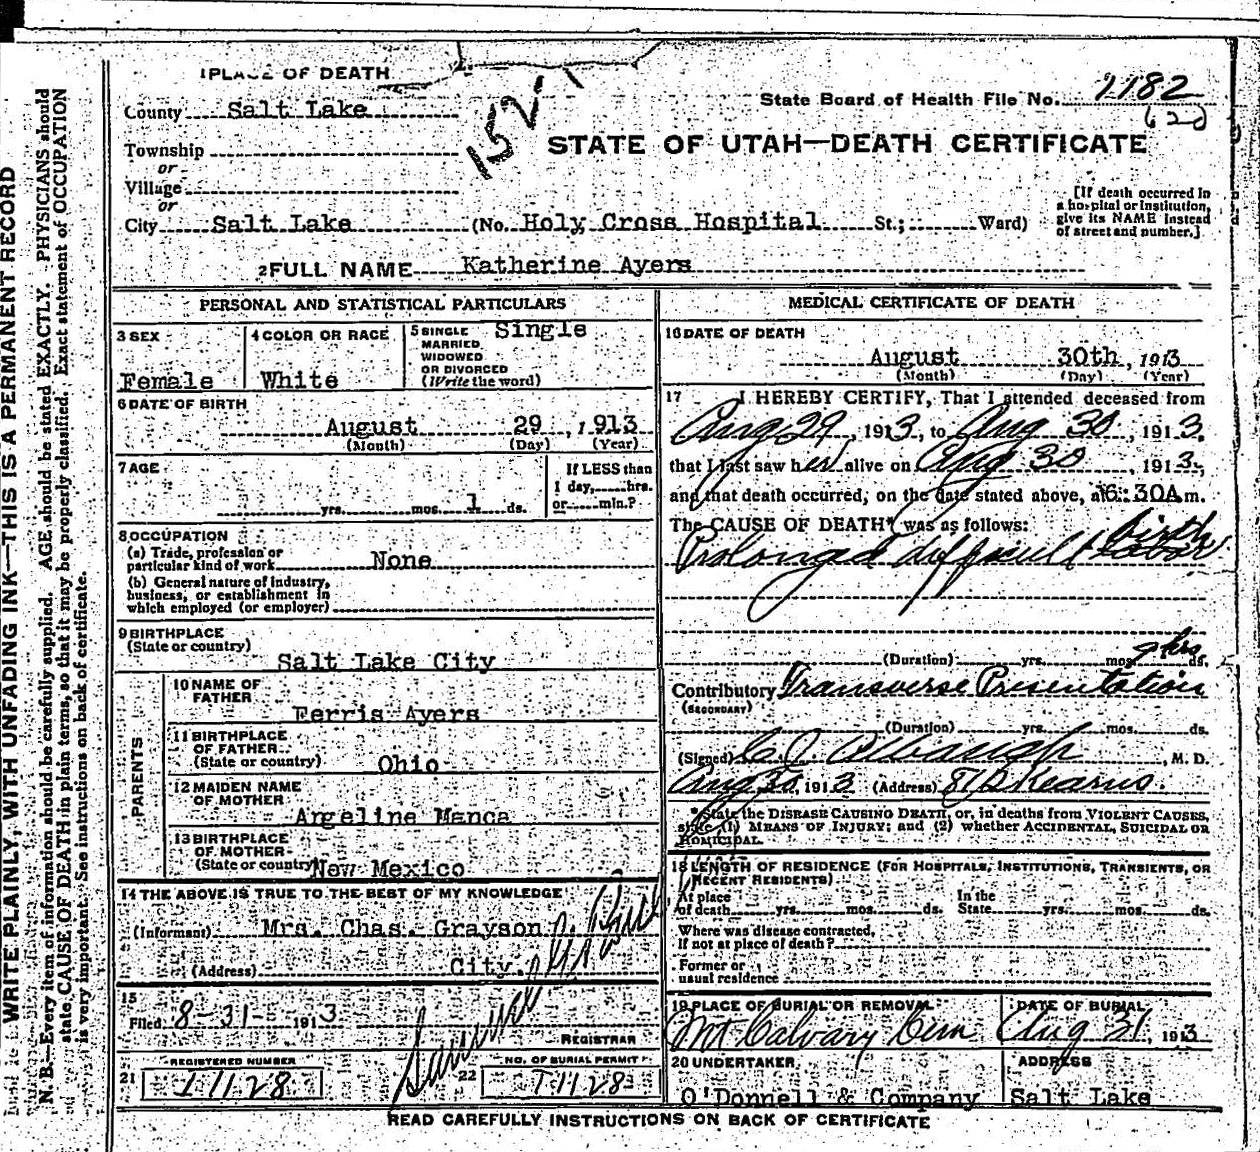 1 PLACE OF DEATH
County Salt Lake
Township
or
Village
or
City Salt Lake (No. Holy Cross Hospital St.; Ward)
1521
State Board of Health File No. 1182
STATE OF UTAH—DEATH CERTIFICATE
[If death occurred in
a hospital or institution,
give its NAME instead
of street and number.]
2 FULL NAME Katherine Ayers
PERSONAL AND STATISTICAL PARTICULARS
3 SEX
Female
4 COLOR OR RACE
White
5 SINGLE Single
MARRIED
WIDOWED
OR DIVORCED
(Write the word)
6 DATE OF BIRTH
August 29, 1913
(Month) (Day) (Year)
7 AGE
yrs. mos. 1 ds.
If LESS than
1 day, hrs.
or min.?
8 OCCUPATION
(a) Trade, profession or
particular kind of work None
(b) General nature of industry,
business, or establishment in
which employed (or employer)
9 BIRTHPLACE
(State or country)
Salt Lake City
PARENTS
10 NAME OF
FATHER
Ferris Ayers
11 BIRTHPLACE
OF FATHER
(State or country)
Ohio
12 MAIDEN NAME
OF MOTHER
Angeline Manca
13 BIRTHPLACE
OF MOTHER
(State or country) New Mexico
14 THE ABOVE IS TRUE TO THE BEST OF MY KNOWLEDGE
(Informant) Mrs. Chas. Grayson
(Address) City.
15
Filed 8-31- 1913
REGISTRAR
REGISTERED NUMBER
21 I 1128
NO. OF BURIAL PERMIT
22 I 1128
MEDICAL CERTIFICATE OF DEATH
16 DATE OF DEATH
August 30th, 1913
(Month) (Day) (Year)
17 I HEREBY CERTIFY, That I attended deceased from
Aug 29, 1913, to Aug 30, 1913,
that I last saw her alive on Aug 30, 1913,
and that death occurred, on the date stated above, at 6:30A m.
The CAUSE OF DEATH* was as follows:
Prolonged difficult birth labor
(Duration) yrs. mos. 9 hrs ds.
Contributory Transverse Presentation
(SECONDARY)
(Duration) yrs. mos. ds.
(Signed) C. J. Albaugh, M. D.
Aug 30, 1913 (Address) 812 Kearns
*State the DISEASE CAUSING DEATH, or, in deaths from VIOLENT CAUSES,
state (1) MEANS OF INJURY; and (2) whether ACCIDENTAL, SUICIDAL OR
HOMICIDAL.
18 LENGTH OF RESIDENCE (FOR HOSPITALS, INSTITUTIONS, TRANSIENTS, OR
RECENT RESIDENTS)
At place
of death yrs. mos. ds.
In the
State yrs. mos. ds.
Where was disease contracted,
If not at place of death?
Former or
usual residence
19 PLACE OF BURIAL OR REMOVAL
Mt Calvary Cem
DATE OF BURIAL
Aug 31, 1913
20 UNDERTAKER
O'Donnell & Company
ADDRESS
Salt Lake
READ CAREFULLY INSTRUCTIONS ON BACK OF CERTIFICATE
WRITE PLAINLY, WITH UNFADING INK—THIS IS A PERMANENT RECORD
N. B.—Every item of information should be carefully supplied. AGE should be stated EXACTLY. PHYSICIANS should
state CAUSE OF DEATH in plain terms, so that it may be properly classified. Exact statement of OCCUPATION
is very important. See instructions on back of certificate.